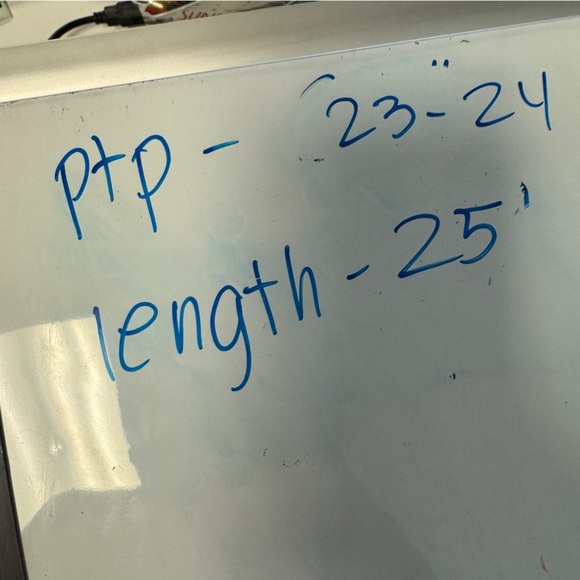 ptp - 23-24
length - 25'